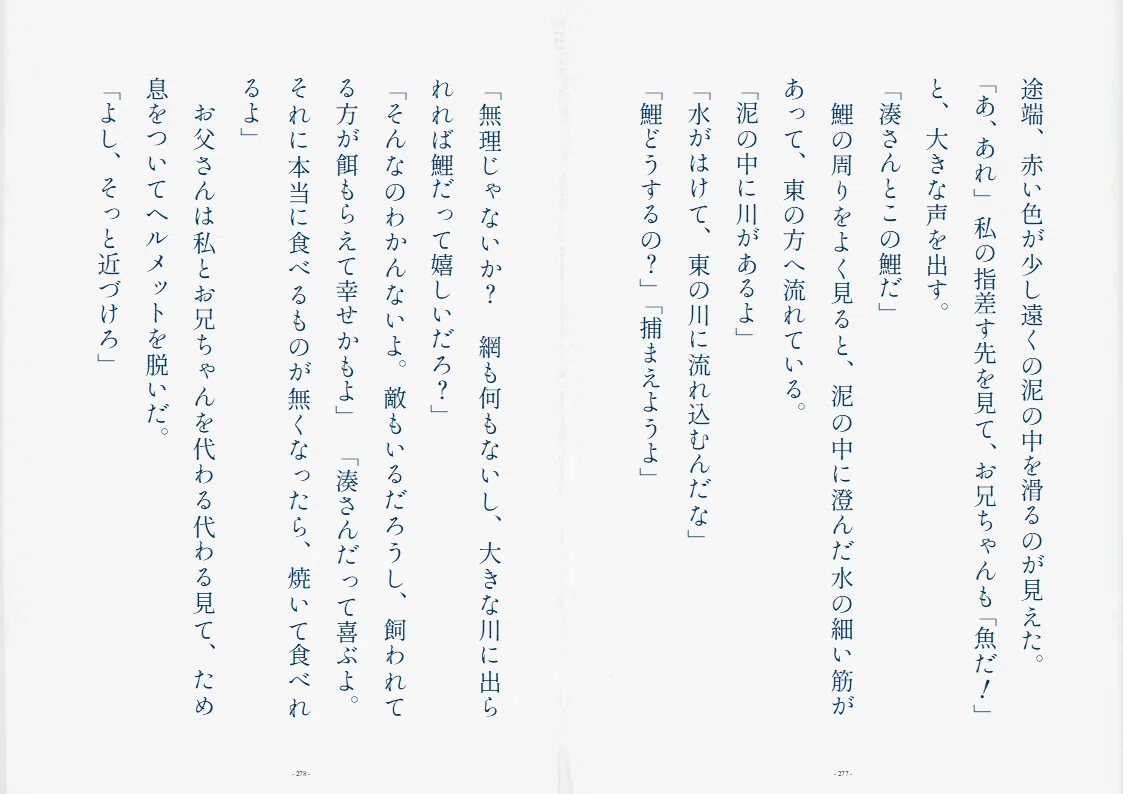 途端、赤い色が少し遠くの泥の中を滑るのが見えた。
「あ、あれ」私の指差す先を見て、お兄ちゃんも「魚だ！」
と、大きな声を出す。
「湊さんとこの鯉だ」
鯉の周りをよく見ると、泥の中に澄んだ水の細い筋が
あって、東の方へ流れている。
「泥の中に川があるよ」
「水がはけて、東の川に流れ込むんだな」
「鯉どうするの？」「捕まえようよ」
- 277 -
「無理じゃないか？　網も何もないし、大きな川に出ら
れれば鯉だって嬉しいだろ？」
「そんなのわかんないよ。敵もいるだろうし、飼われて
る方が餌もらえて幸せかもよ」　「湊さんだって喜ぶよ。
それに本当に食べるものが無くなったら、焼いて食べれ
るよ」
お父さんは私とお兄ちゃんを代わる代わる見て、ため
息をついてヘルメットを脱いだ。
「よし、そっと近づけろ」
- 278 -